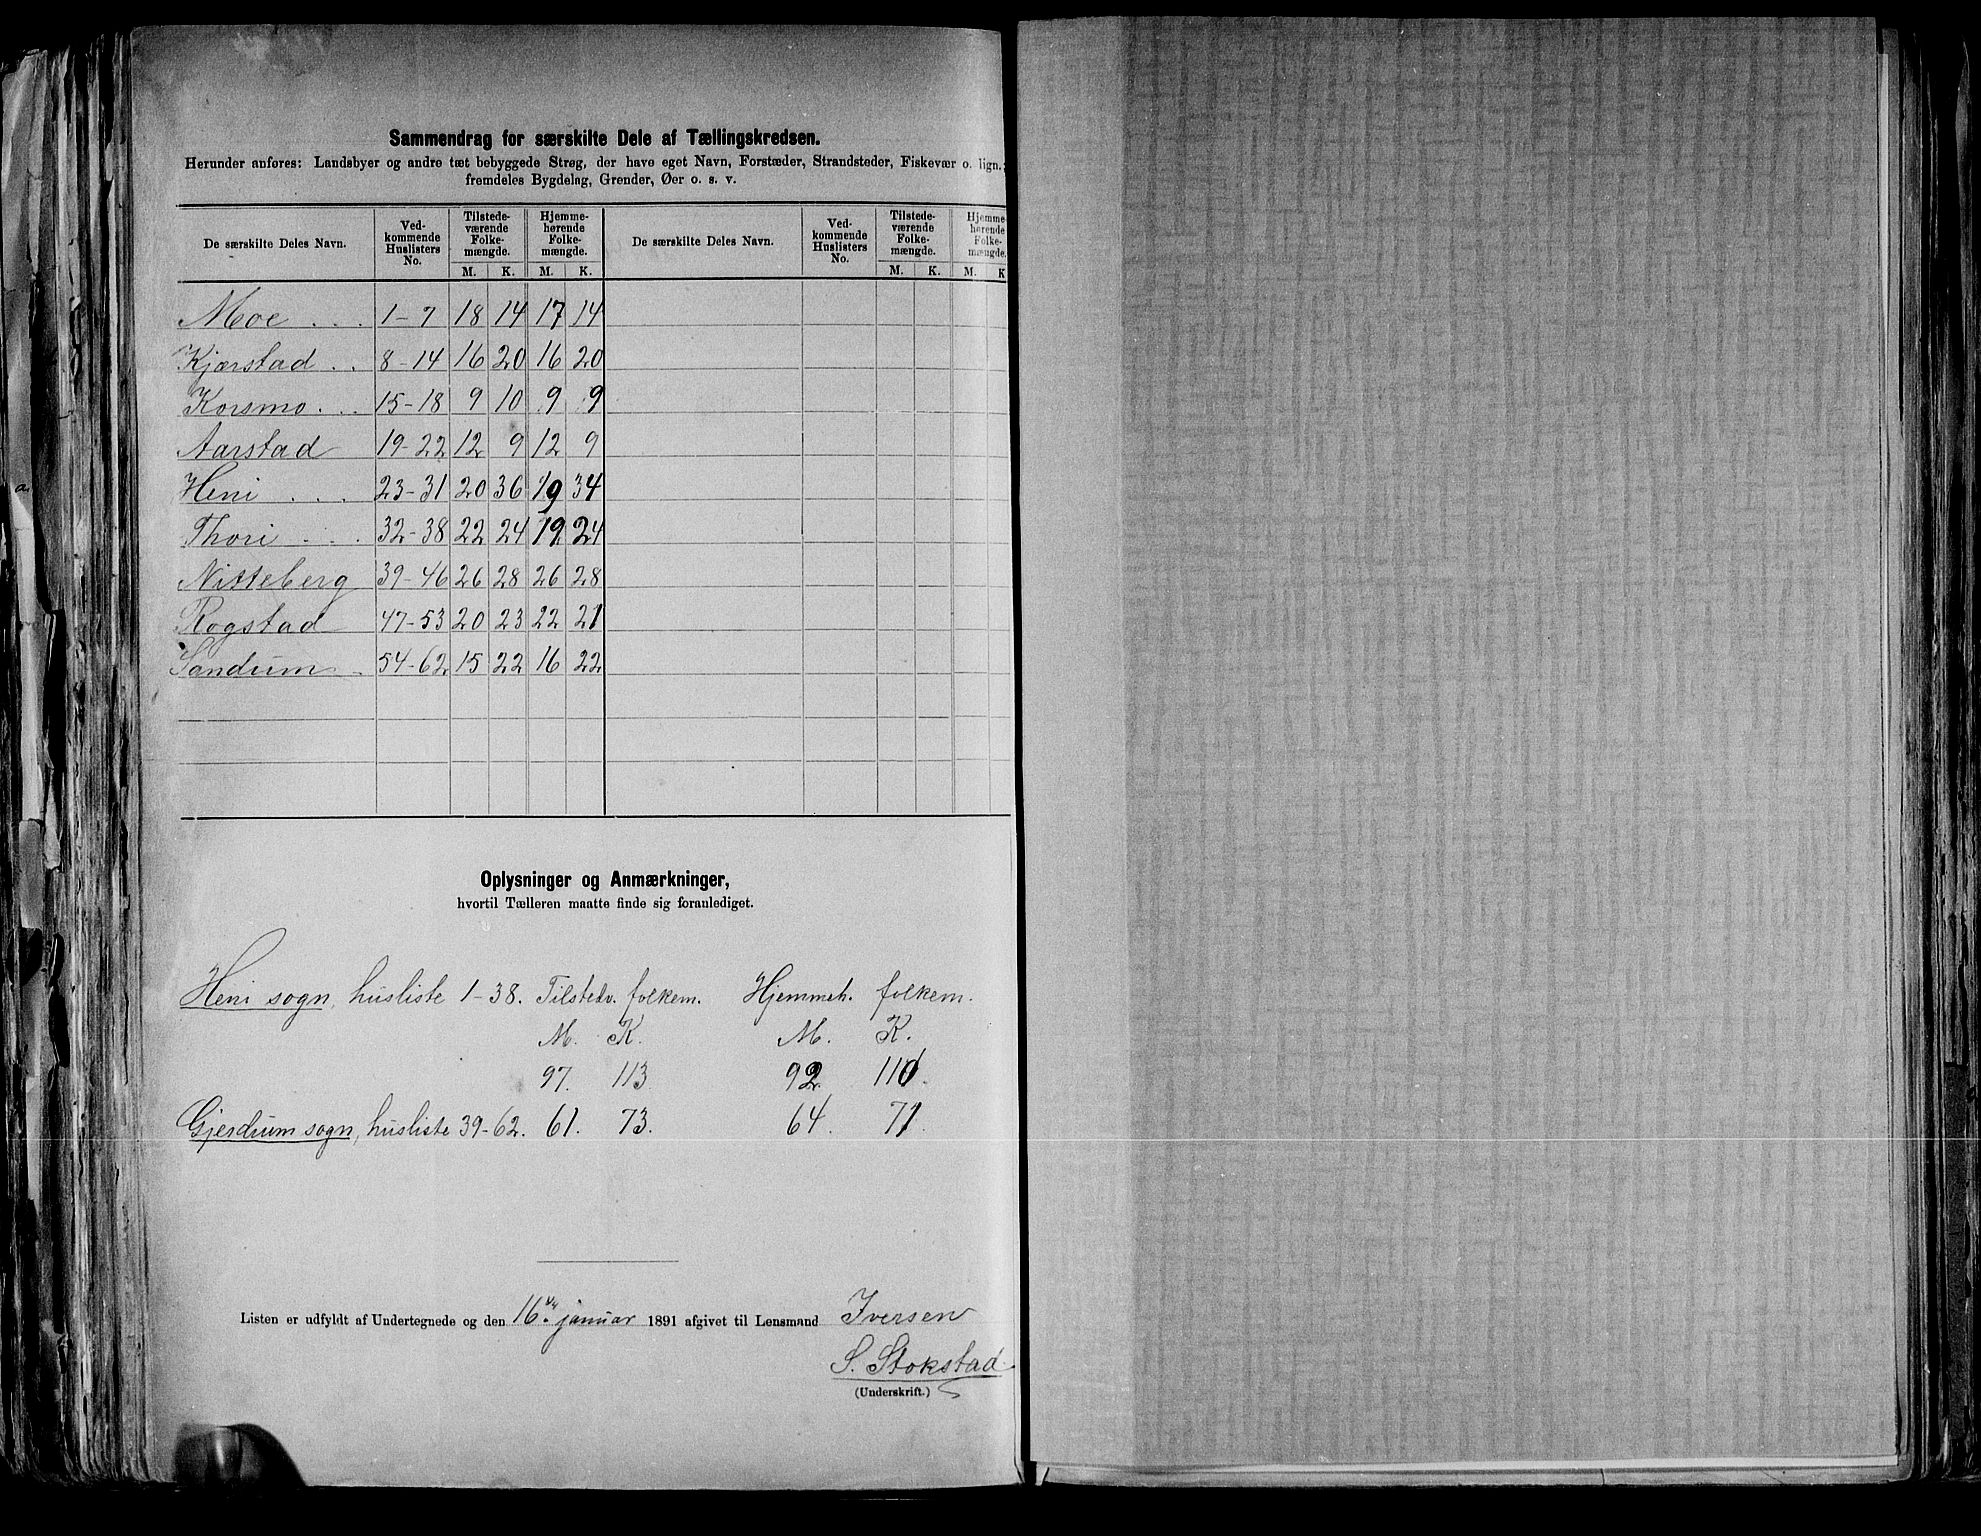 Sammendrag for særskilte Dele af Tællingskredsen.
Herunder anføres: Landsbyer og andre tæt bebyggede Strøg, der have eget Navn, Forstæder, Strandsteder, Fiskevær o. lign.;
fremdeles Bygdelag, Grender, Øer o. s. v.
De særskilte Deles Navn. Ved-kommende Huslisters No. Tilstede-værende Folke-mængde. Hjemme-hørende Folke-mængde. De særskilte Deles Navn. Ved-kommende Huslisters No. Tilstede-værende Folke-mængde. Hjemme-hørende Folke-mængde.
M. K. M. K. M. K. M. K
Moe . . . 1-7 18 14 17 14
Kjærstad . . 8-14 16 20 16 20
Korsmo . . . 15-18 9 10 9 9
Aarstad 19-22 12 9 12 9
Heni . . . 23-31 20 36 19 34
Thori . . . 32-38 22 24 19 24
Nitteberg 39-46 26 28 26 28
Rogstad 47-53 20 23 22 21
Sandum . 54-62 15 22 16 22
Oplysninger og Anmærkninger,
hvortil Tælleren maatte finde sig foranlediget.
Heni sogn, husliste 1-38. Tilstedv. folkem. Hjemmeh. folkem.
M. K. M. K.
97. 113 92 110.
Gjerdrum sogn, husliste 39-62. 61. 73. 64. 71.
Listen er udfyldt af Undertegnede og den 16de januar 1891 afgivet til Lensmand Iversen
S. Stokstad
(Underskrift.)